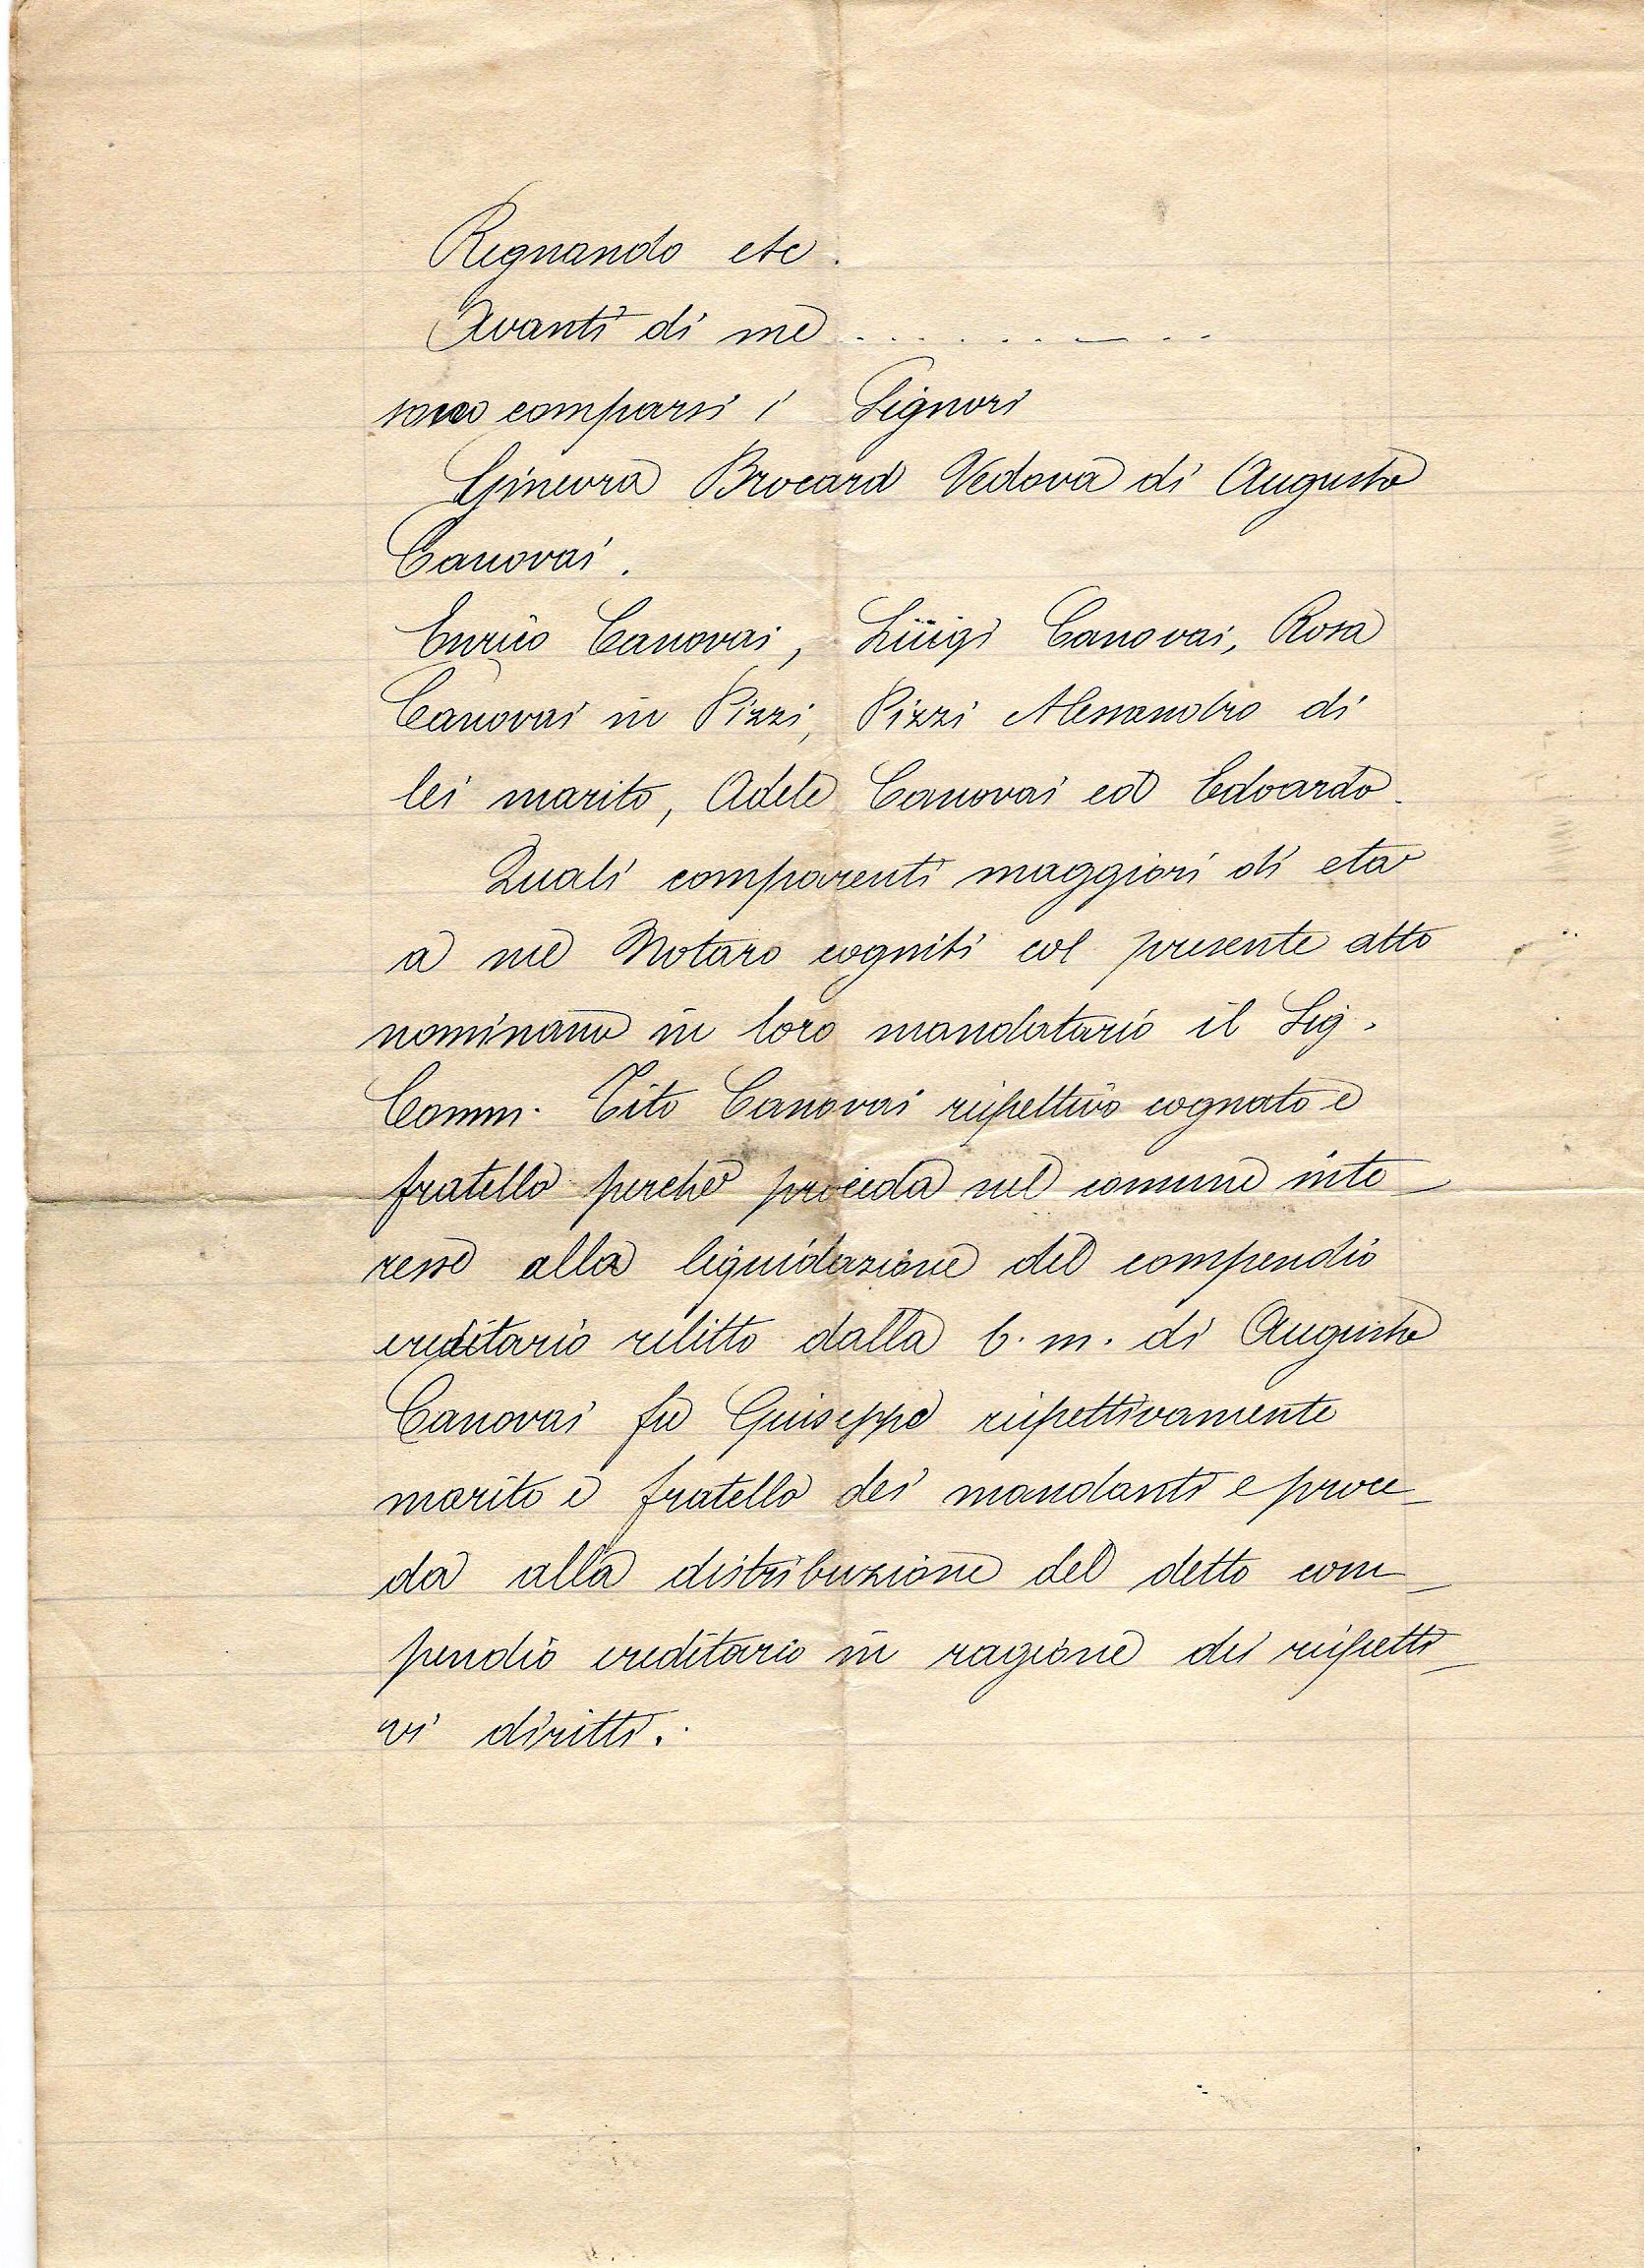 Regnando etc.
Avanti di me . . . . . . . . .
sono comparsi i Signori
Ginevra Brocard Vedova di Augusto
Canovai.
Enrico Canovai, Luigi Canovai, Rosa
Canovai in Pizzi, Pizzi Alessandro di
lei marito, Adele Canovai ed Edoardo.
Quali comparenti maggiori di età
a me Notaro cogniti col presente atto
nominano in loro mandatario il Sig.
Comm. Tito Canovai rispettivo cognato e
fratello perchè proceda nel comune inte-
resse alla liquidazione del compendio
ereditario relitto dalla b. m. di Augusto
Canovai fu Giuseppe rispettivamente
marito e fratello dei mandanti e proce-
da alla distribuzione del detto com-
pendio ereditario in ragione dei rispetti-
vi diritti.